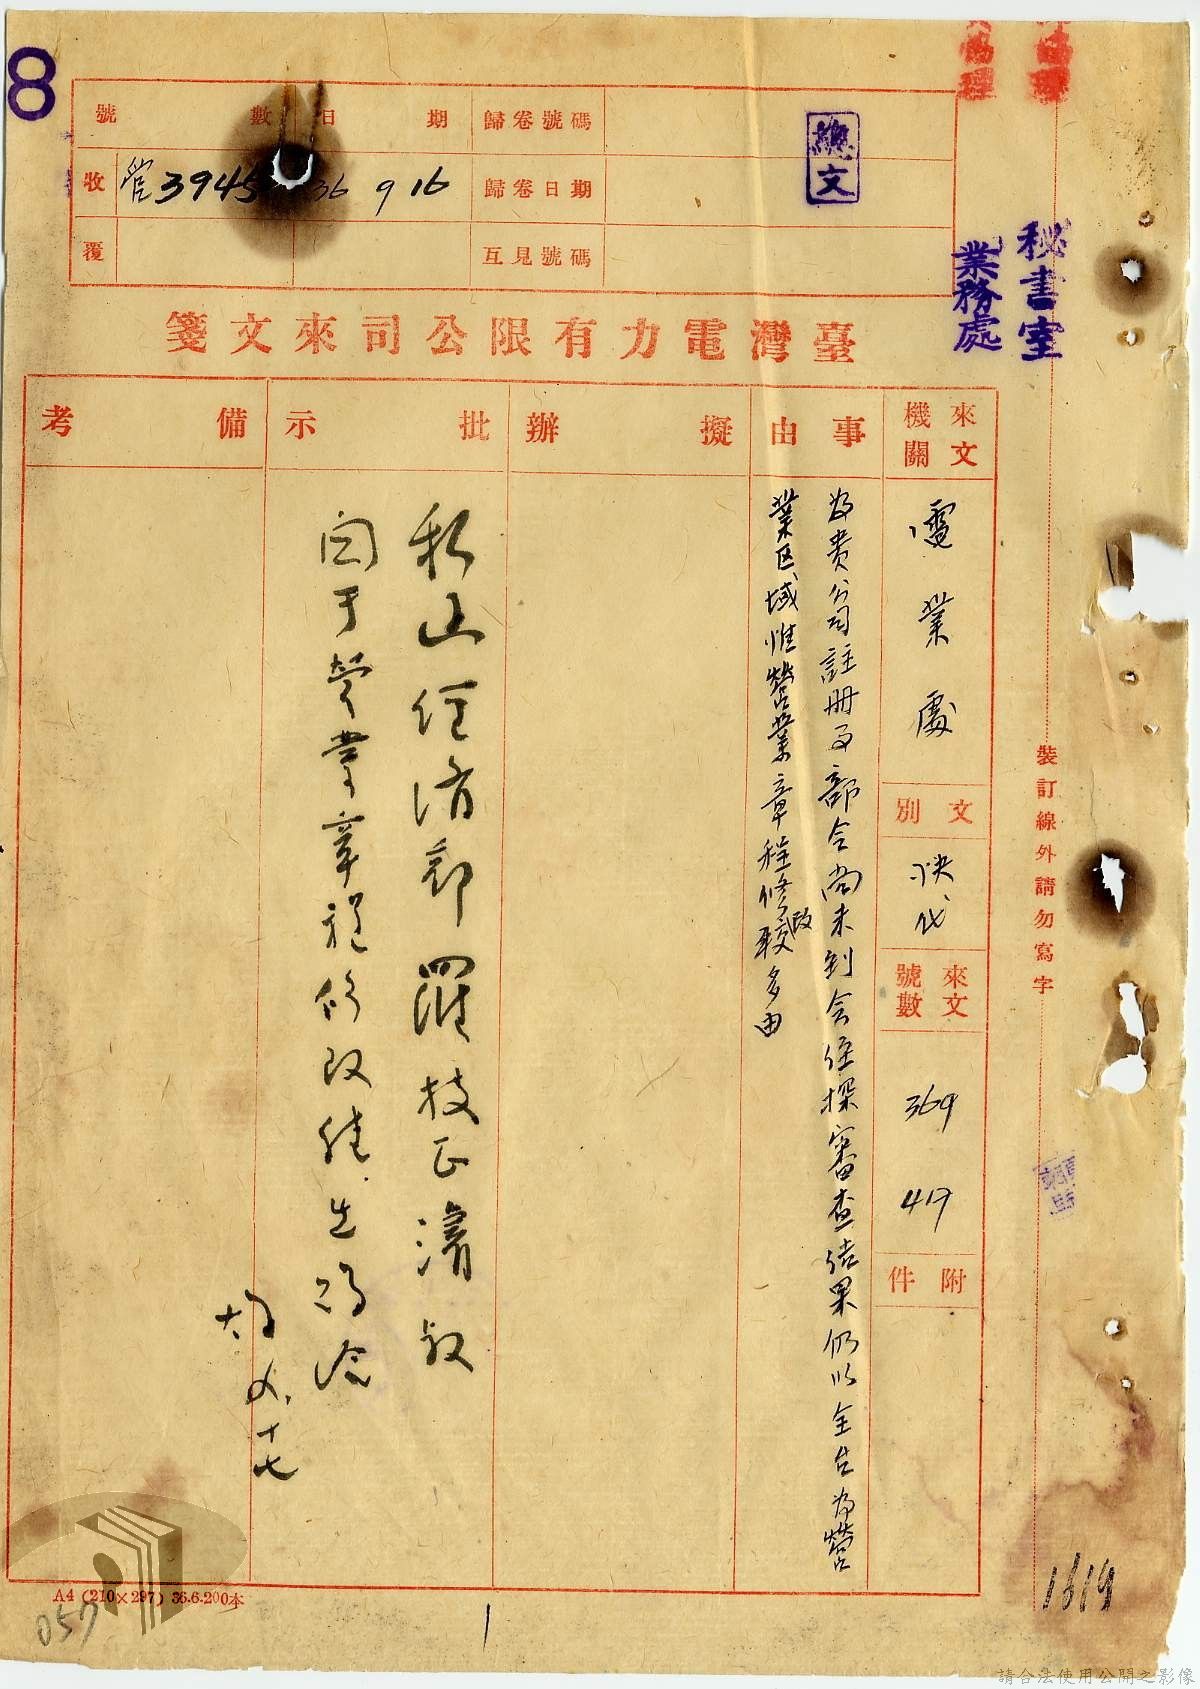 8
總文
秘書室
業務處
號數 日期 歸卷號碼
收 管3945 36 9 16 歸卷日期
覆 互見號碼
臺灣電力有限公司來文箋
來文機關
電業處
文別
快代
來文號數
369
417
附件
事由
為貴公司註冊事部令尚未到會經探審查結果仍以全台為營
業区域惟營業章程修改較多由
擬辦
批示
私函經濟部羅技正濬叔
関于營業章程修改
十七
備考
裝訂線外請勿寫字
1619
A4 (210×297) 36.6.200本
057
1
請合法使用公開之影像